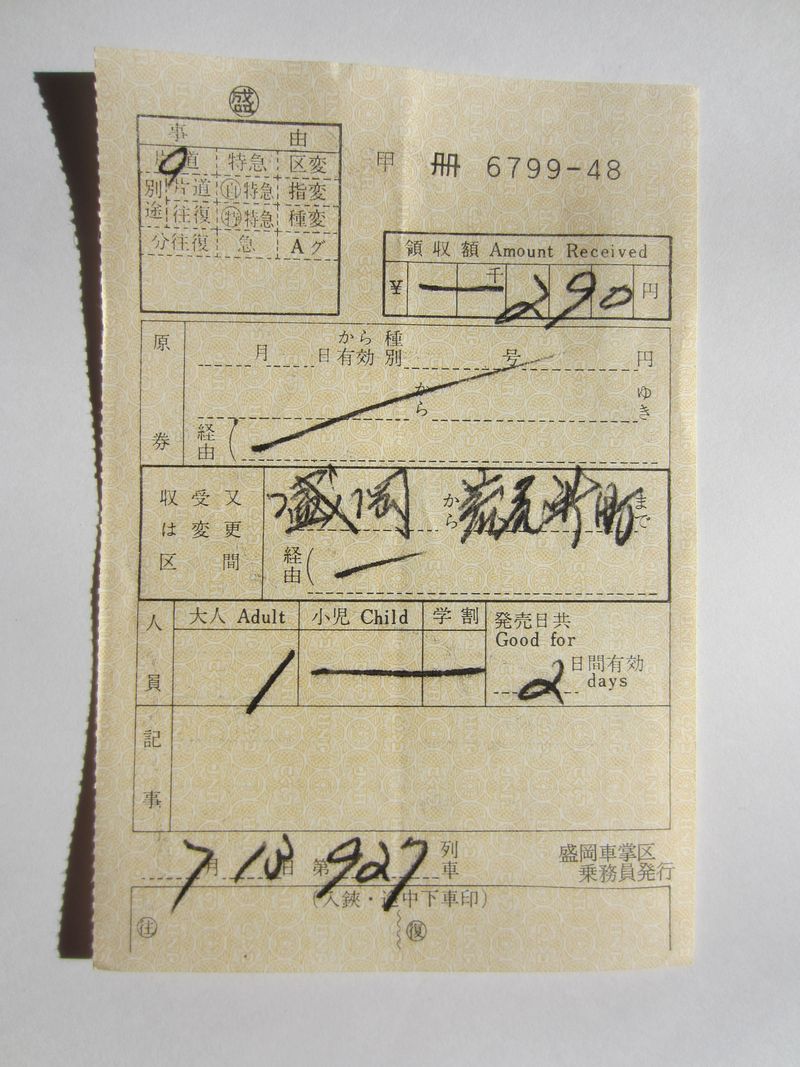 盛
事 由
片道 特急 区変
別途 片道 自特急 指変
往復 特特急 種変
分往復 急 Aグ
9
甲 冊 6799-48
領収額 Amount Received
¥ — 千 290 円
原券
月 日 から有効 種別 号 円
から ゆき
経由(
収受又は変更区間
盛岡 から 荒屋新町 まで
経由( —
人員
大人 Adult 小児 Child 学割
1 —
発売日共
Good for
2 日間有効
days
記事
7月 13日 第 927 列車
盛岡車掌区
乗務員発行
(入鋏・途中下車印)
往 復